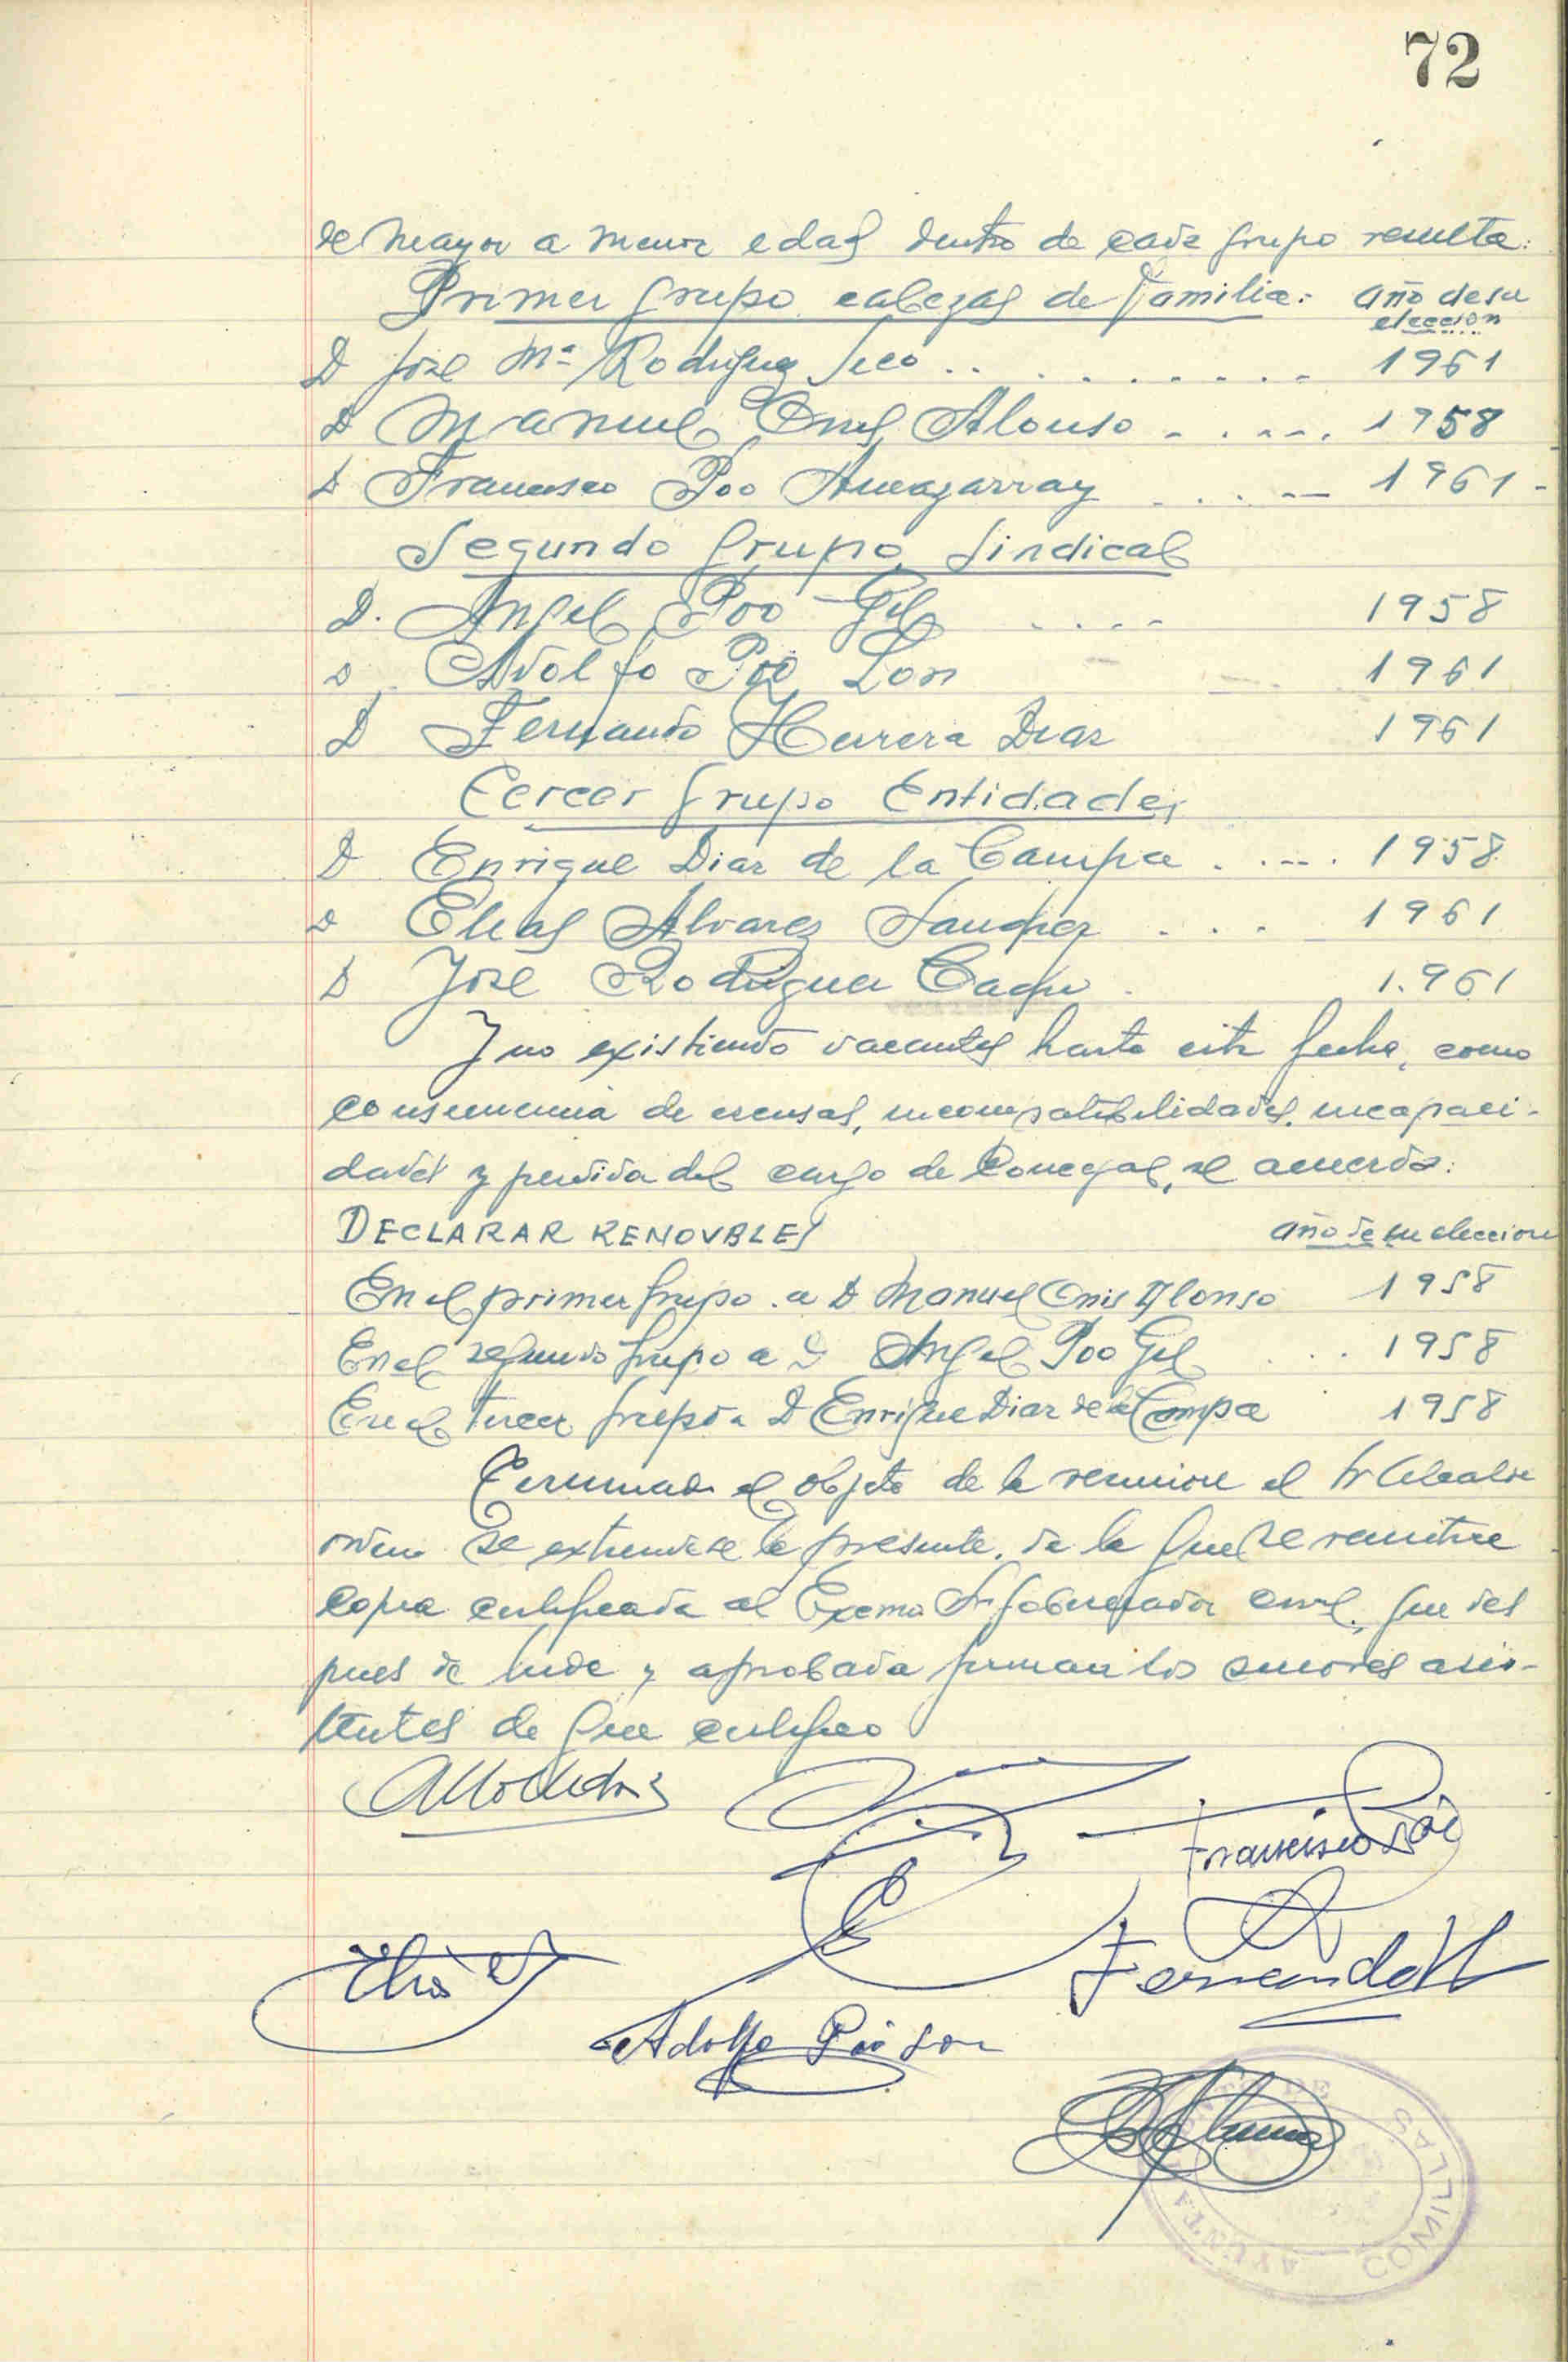 72
de mayor a menor edad dentro de cada grupo resulta:
Primer grupo cabezas de familia: año de su
elección
D José Mª Rodriguez Seco .. . . . . . . . . 1961
D Manuel Onis Alonso - . . - - . 1958
D Francisco Poo . . . -- 1961 -
Segundo grupo Sindical
D. Angel Poo Gil . . . - - 1958
D Adolfo Poo Lon 1961
D Fernando Herrera Diaz 1961
Tercer grupo Entidades
D Enrique Diaz de la Campa . . -- . 1958
D Elias Alvarez Sanchez . . . . 1961
D José Rodriguez 1.961
Y no existiendo vacantes hasta esta fecha, como
consecuencia de excusas, incompatibilidades, incapaci-
dades y perdida del cargo de Concejal, se acuerda:
DECLARAR RENOVBLES año de su eleccion
En el primer grupo . a D Manuel Onis Alonso 1958
En el segundo grupo a D Angel Poo Gil . . . 1958
En el tercer grupo a D Enrique Diaz de la Campa 1958
Terminado el objeto de la reunion el Sr Alcalde
ordena se extendiese la presente, de la que se remitira
copia certificada al Excmo Sr Gobernador civil, que des
pues de leida y aprobada firman los señores asis-
tentes de que certifico
Francisco Poo
Elias
Fernando H
Adolfo Poo Lon
AYUNTAMIENTO DE COMILLAS